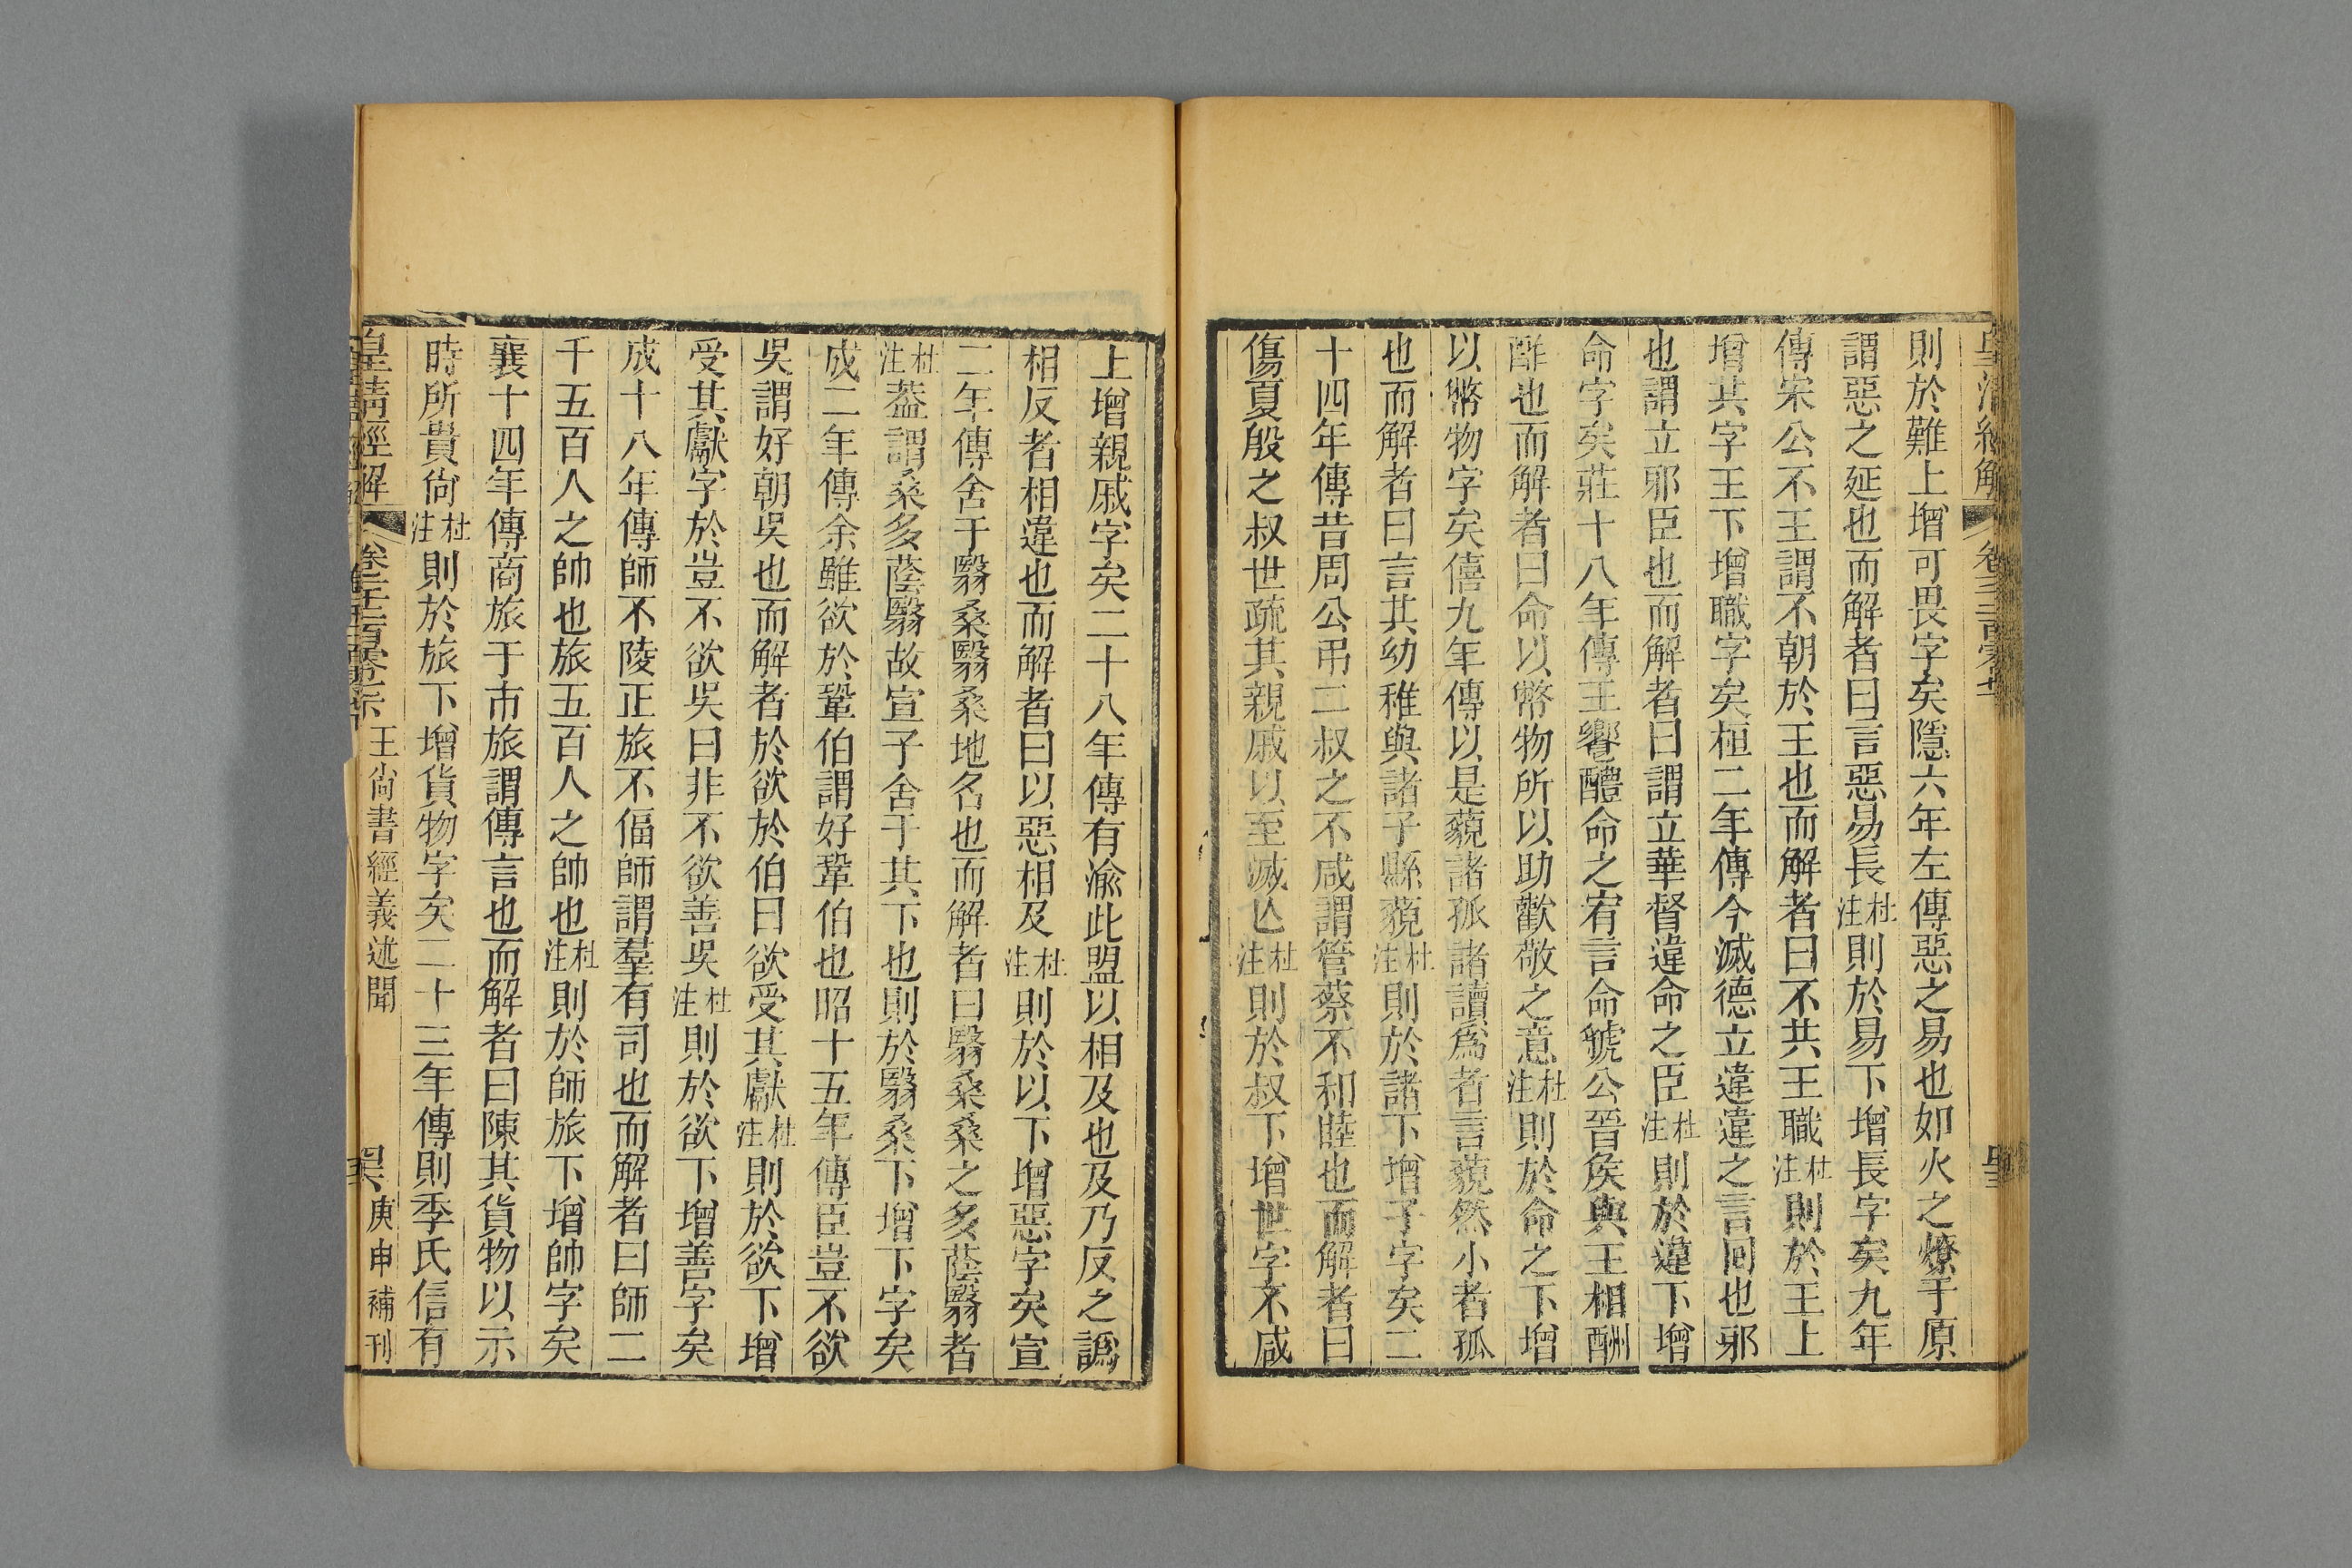 則於難上增可畏字矣隱六年左傳惡之易也如火之燎于原
謂惡之延也而解者曰言惡易長杜注則於易下增長字矣九年
傳宋公不王謂不朝於王也而解者曰不共王職杜注則於王上
增其字王下增職字矣桓二年傳今滅德立違違之言回也邪
也謂立邪臣也而解者曰謂立華督違命之臣杜注則於違下增
命字矣莊十八年傳王饗醴命之宥言命虢公晉矦與王相酬
酢也而解者曰命以幣物所以助歡敬之意杜注則於命之下增
以幣物字矣僖九年傳以是藐諸孤諸讀爲者言藐然小者孤
也而解者曰言其幼稚與諸子縣藐杜注則於諸下增子字矣二
十四年傳昔周公弔二叔之不咸謂管蔡不和睦也而解者曰
傷夏殷之叔世疏其親戚以至滅亾杜注則於叔下增世字不咸
上增親戚字矣二十八年傳有渝此盟以相及也及乃反之譌
相反者相違也而解者曰以惡相及杜注則於以下增惡字矣宣
二年傳舍于翳桑翳桑地名也而解者曰翳桑桑之多蔭翳者
杜注葢謂桑多蔭翳故宣子舍于其下也則於翳桑下增下字矣
成二年傳余雖欲於鞏伯謂好鞏伯也昭十五年傳臣豈不欲
吳謂好朝吳也而解者於欲於伯曰欲受其獻杜注則於欲下增
受其獻字於豈不欲吳曰非不欲善吳杜注則於欲下增善字矣
成十八年傳師不陵正旅不偪師謂羣有司也而解者曰師二
千五百人之帥也旅五百人之帥也杜注則於師旅下增帥字矣
襄十四年傳商旅于市旅謂傳言也而解者曰陳其貨物以示
時所貴尙杜注則於旅下增貨物字矣二十三年傳則季氏信有
皇淸經解
王尙書經義述聞
庚申補刊